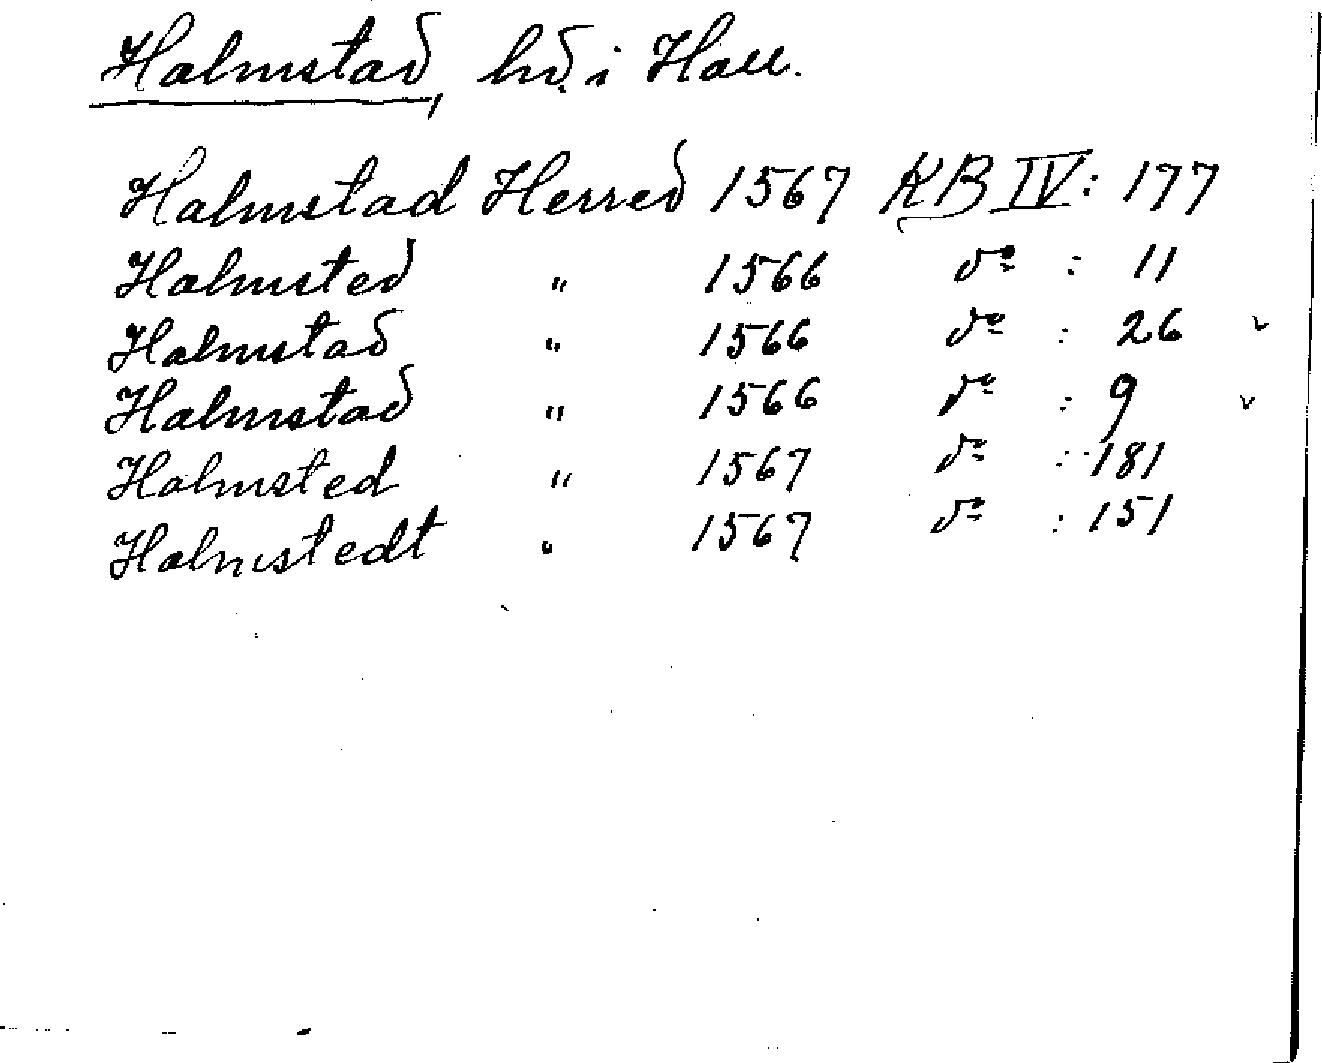 Halmstad, hd. i Hall.
Halmstad Herred 1567 KB IV: 177
Halmsted " 1566 dº : 11
Halmstad " 1566 dº : 26 v
Halmstad " 1566 dº : 9 v
Halmsted " 1567 dº : 181
Halmstedt " 1567 dº : 151